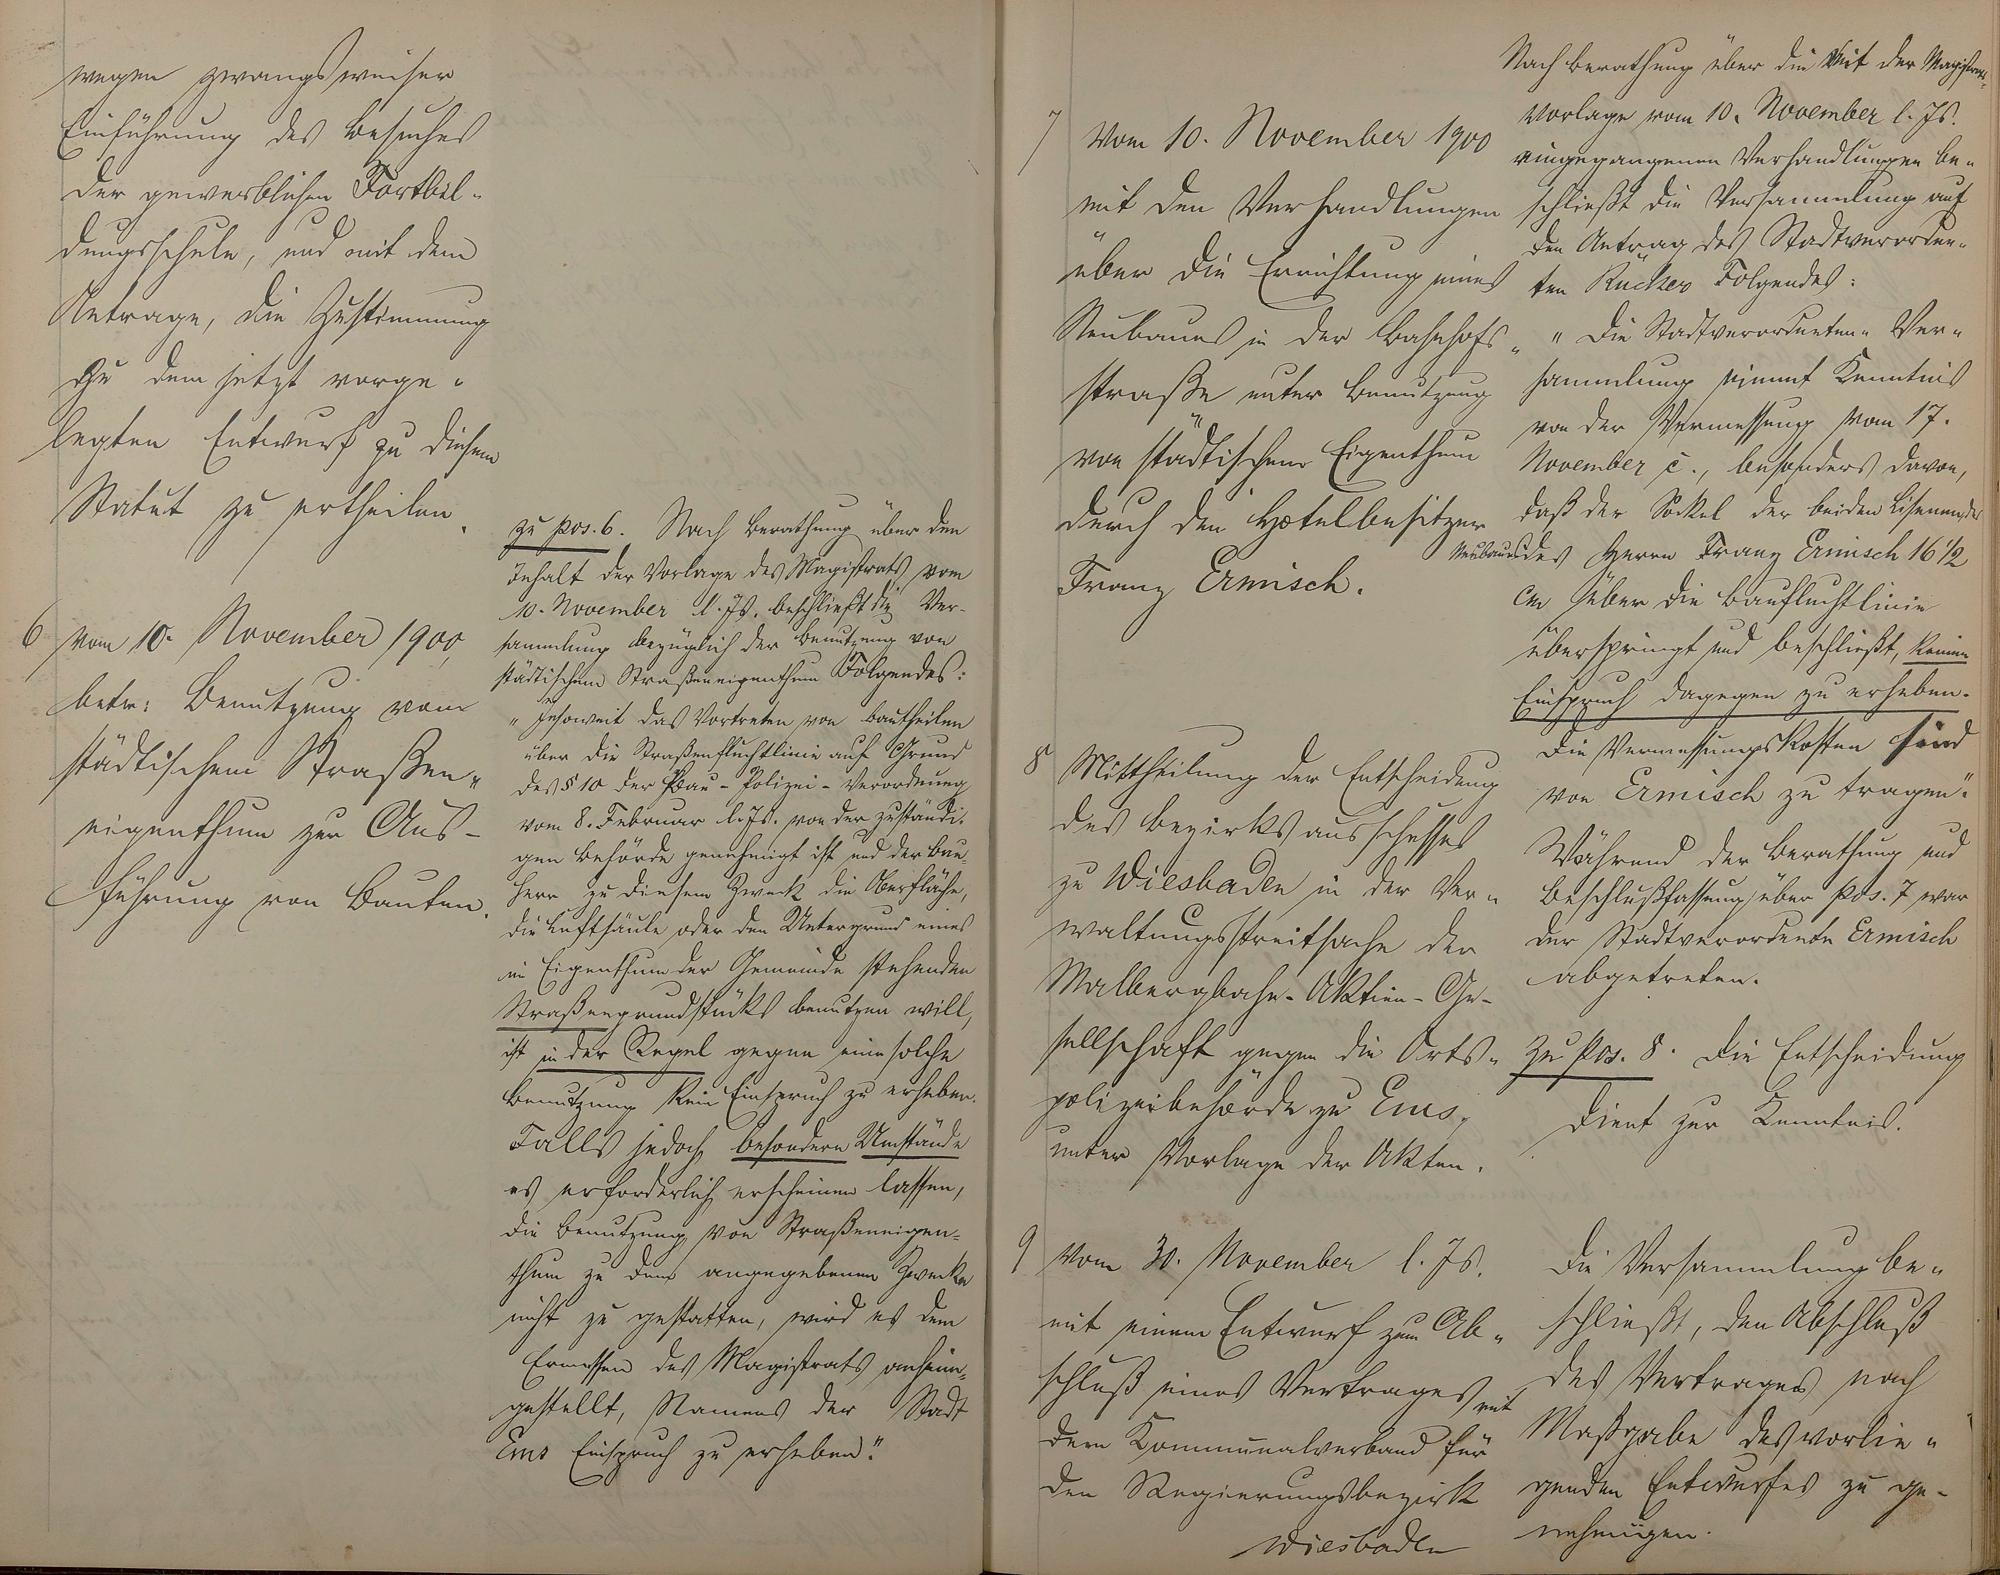 wegen zwangsweiser
Einführung des Besuches
der gewerblichen Fortbil-
dungsschule, und mit dem
Antrage, die Zustimmung
zu dem jetzt vorge-
legten Entwurf zu diesem
Statut zu ertheilen.
6 vom 10. November 1900,
betr: Benutzung vom
städtischem Straßen-
eigenthum zur Aus-
führung von Bauten.
zu pos. 6. Nach Berathung über den
Inhalt der Vorlage des Magistrats vom
10. November l. Js. beschließt die Ver-
sammlung bezüglich der Benutzung von
städtischem Straßeneigenthum Folgendes:
"Insoweit das Vortreten von Bautheilen
über die Straßenfluchtlinie auf Grund
des § 10 der Bau-Polizei-Verordnung
vom 8. Februar l. Js. von der zuständi-
gen Behörde genehmigt ist und der Bau-
herr zu diesem Zweck die Oberfläche,
die Luftsäule oder den Untergrund eines
im Eigenthum der Gemeinde stehenden
Straßengrundstücks benutzen will,
ist in der Regel gegen eine solche
Benutzung kein Einspruch zu erheben.
Falls jedoch besondere Umstände
es erforderlich erscheinen lassen,
die Benutzung von Straßeneigen-
thum zu dem angegebenen Zwecke
nicht zu gestatten, wird es dem
Ermessen des Magistrats anheim-
gestellt, Namens der Stadt
Ems Einspruch zu erheben."
7 vom 10. November 1900
mit den Verhandlungen
über die Errichtung eines
Neubaues in der Bahnhofs-
straße unter Benutzung
von städtischem Eigenthum
durch den Hotelbesitzer
Franz Ermisch.
8 Mittheilung der Entscheidung
des Bezirksausschusses
zu Wiesbaden in der Ver-
waltungsstreitsache der
Malbergbahn-Aktien-Ge-
sellschaft gegen die Orts-
polizeibehörde zu Ems,
unter Vorlage der Akten.
9 vom 30. November l. Js.
mit einem Entwurf zum Ab-
schluß eines Vertrages mit
dem Kommunalverband für
den Regierungsbezirk
Wiesbaden
Nach Berathung über die mit der Magistrats-
vorlage vom 10. November l. Js.
eingegangenen Verhandlungen be-
schließt die Versammlung auf
den Antrag des Stadtverordne-
ten Rücker Folgendes:
"Die Stadtverordneten-Ver-
sammlung nimmt Kenntnis
von der Vermessung vom 17.
November c., besonders davon,
daß der Sockel der beiden Lisenen des
Neubaues des Herrn Franz Ermisch 16 1/2
cm über die Baufluchtlinie
überspringt und beschließt, keinen
Einspruch dagegen zu erheben.
Die Vermessungskosten sind
von Ermisch zu tragen."
Während der Berathung und
Beschlußfassung über pos. 7 war
der Stadtverordnete Ermisch
abgetreten.
Zu Pos. 8. Die Entscheidung
dient zur Kenntnis.
Die Versammlung be-
schließt, den Abschluß
des Vertrages nach
Maßgabe des vorlie-
genden Entwurfes zu ge-
nehmigen.